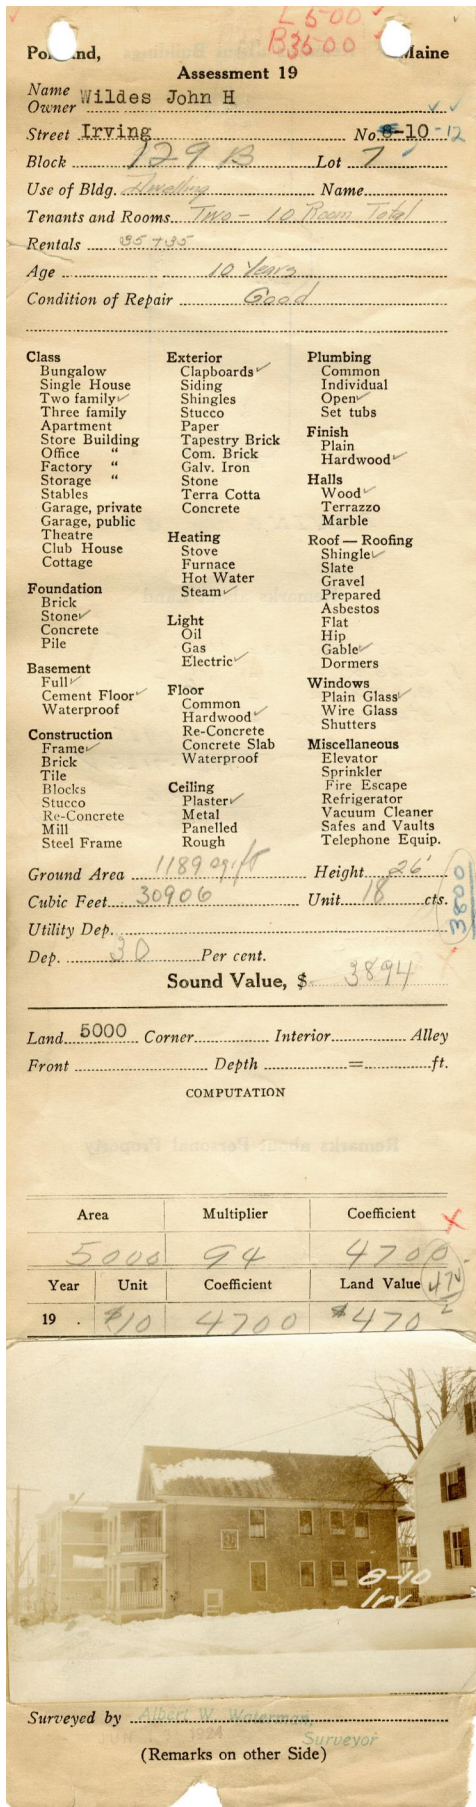 L 500
B 3500
Portland, Maine
Assessment 19
Name
Owner Wildes John H
Street Irving No. 8-10-12
Block 129 B Lot 7
Use of Bldg. Dwelling Name
Tenants and Rooms Two - 10 Room Total
Rentals 35+35
Age 10 Years
Condition of Repair Good
Class
Bungalow
Single House
Two family ✓
Three family
Apartment
Store Building
Office "
Factory "
Storage "
Stables
Garage, private
Garage, public
Theatre
Club House
Cottage
Foundation
Brick
Stone ✓
Concrete
Pile
Basement
Full ✓
Cement Floor ✓
Waterproof
Construction
Frame ✓
Brick
Tile
Blocks
Stucco
Re-Concrete
Mill
Steel Frame
Exterior
Clapboards ✓
Siding
Shingles
Stucco
Paper
Tapestry Brick
Com. Brick
Galv. Iron
Stone
Terra Cotta
Concrete
Heating
Stove
Furnace
Hot Water
Steam ✓
Light
Oil
Gas
Electric ✓
Floor
Common
Hardwood ✓
Re-Concrete
Concrete Slab
Waterproof
Ceiling
Plaster ✓
Metal
Panelled
Rough
Plumbing
Common
Individual
Open ✓
Set tubs
Finish
Plain
Hardwood ✓
Halls
Wood ✓
Terrazzo
Marble
Roof — Roofing
Shingle ✓
Slate
Gravel
Prepared
Asbestos
Flat
Hip
Gable ✓
Dormers
Windows
Plain Glass ✓
Wire Glass
Shutters
Miscellaneous
Elevator
Sprinkler
Fire Escape
Refrigerator
Vacuum Cleaner
Safes and Vaults
Telephone Equip.
Ground Area 1189 sq. ft Height 26'
Cubic Feet 30906 Unit 18 cts.
3800
Utility Dep.
Dep. 30 Per cent.
Sound Value, $ 3894
Land 5000 Corner Interior Alley
Front Depth = ft.
COMPUTATION
Area Multiplier Coefficient
5000 94 4700
Year Unit Coefficient Land Value
19 . $10 4700 $470
8-10
Irv
Surveyed by Albert W. Waterman,
1924 Surveyor
(Remarks on other Side)